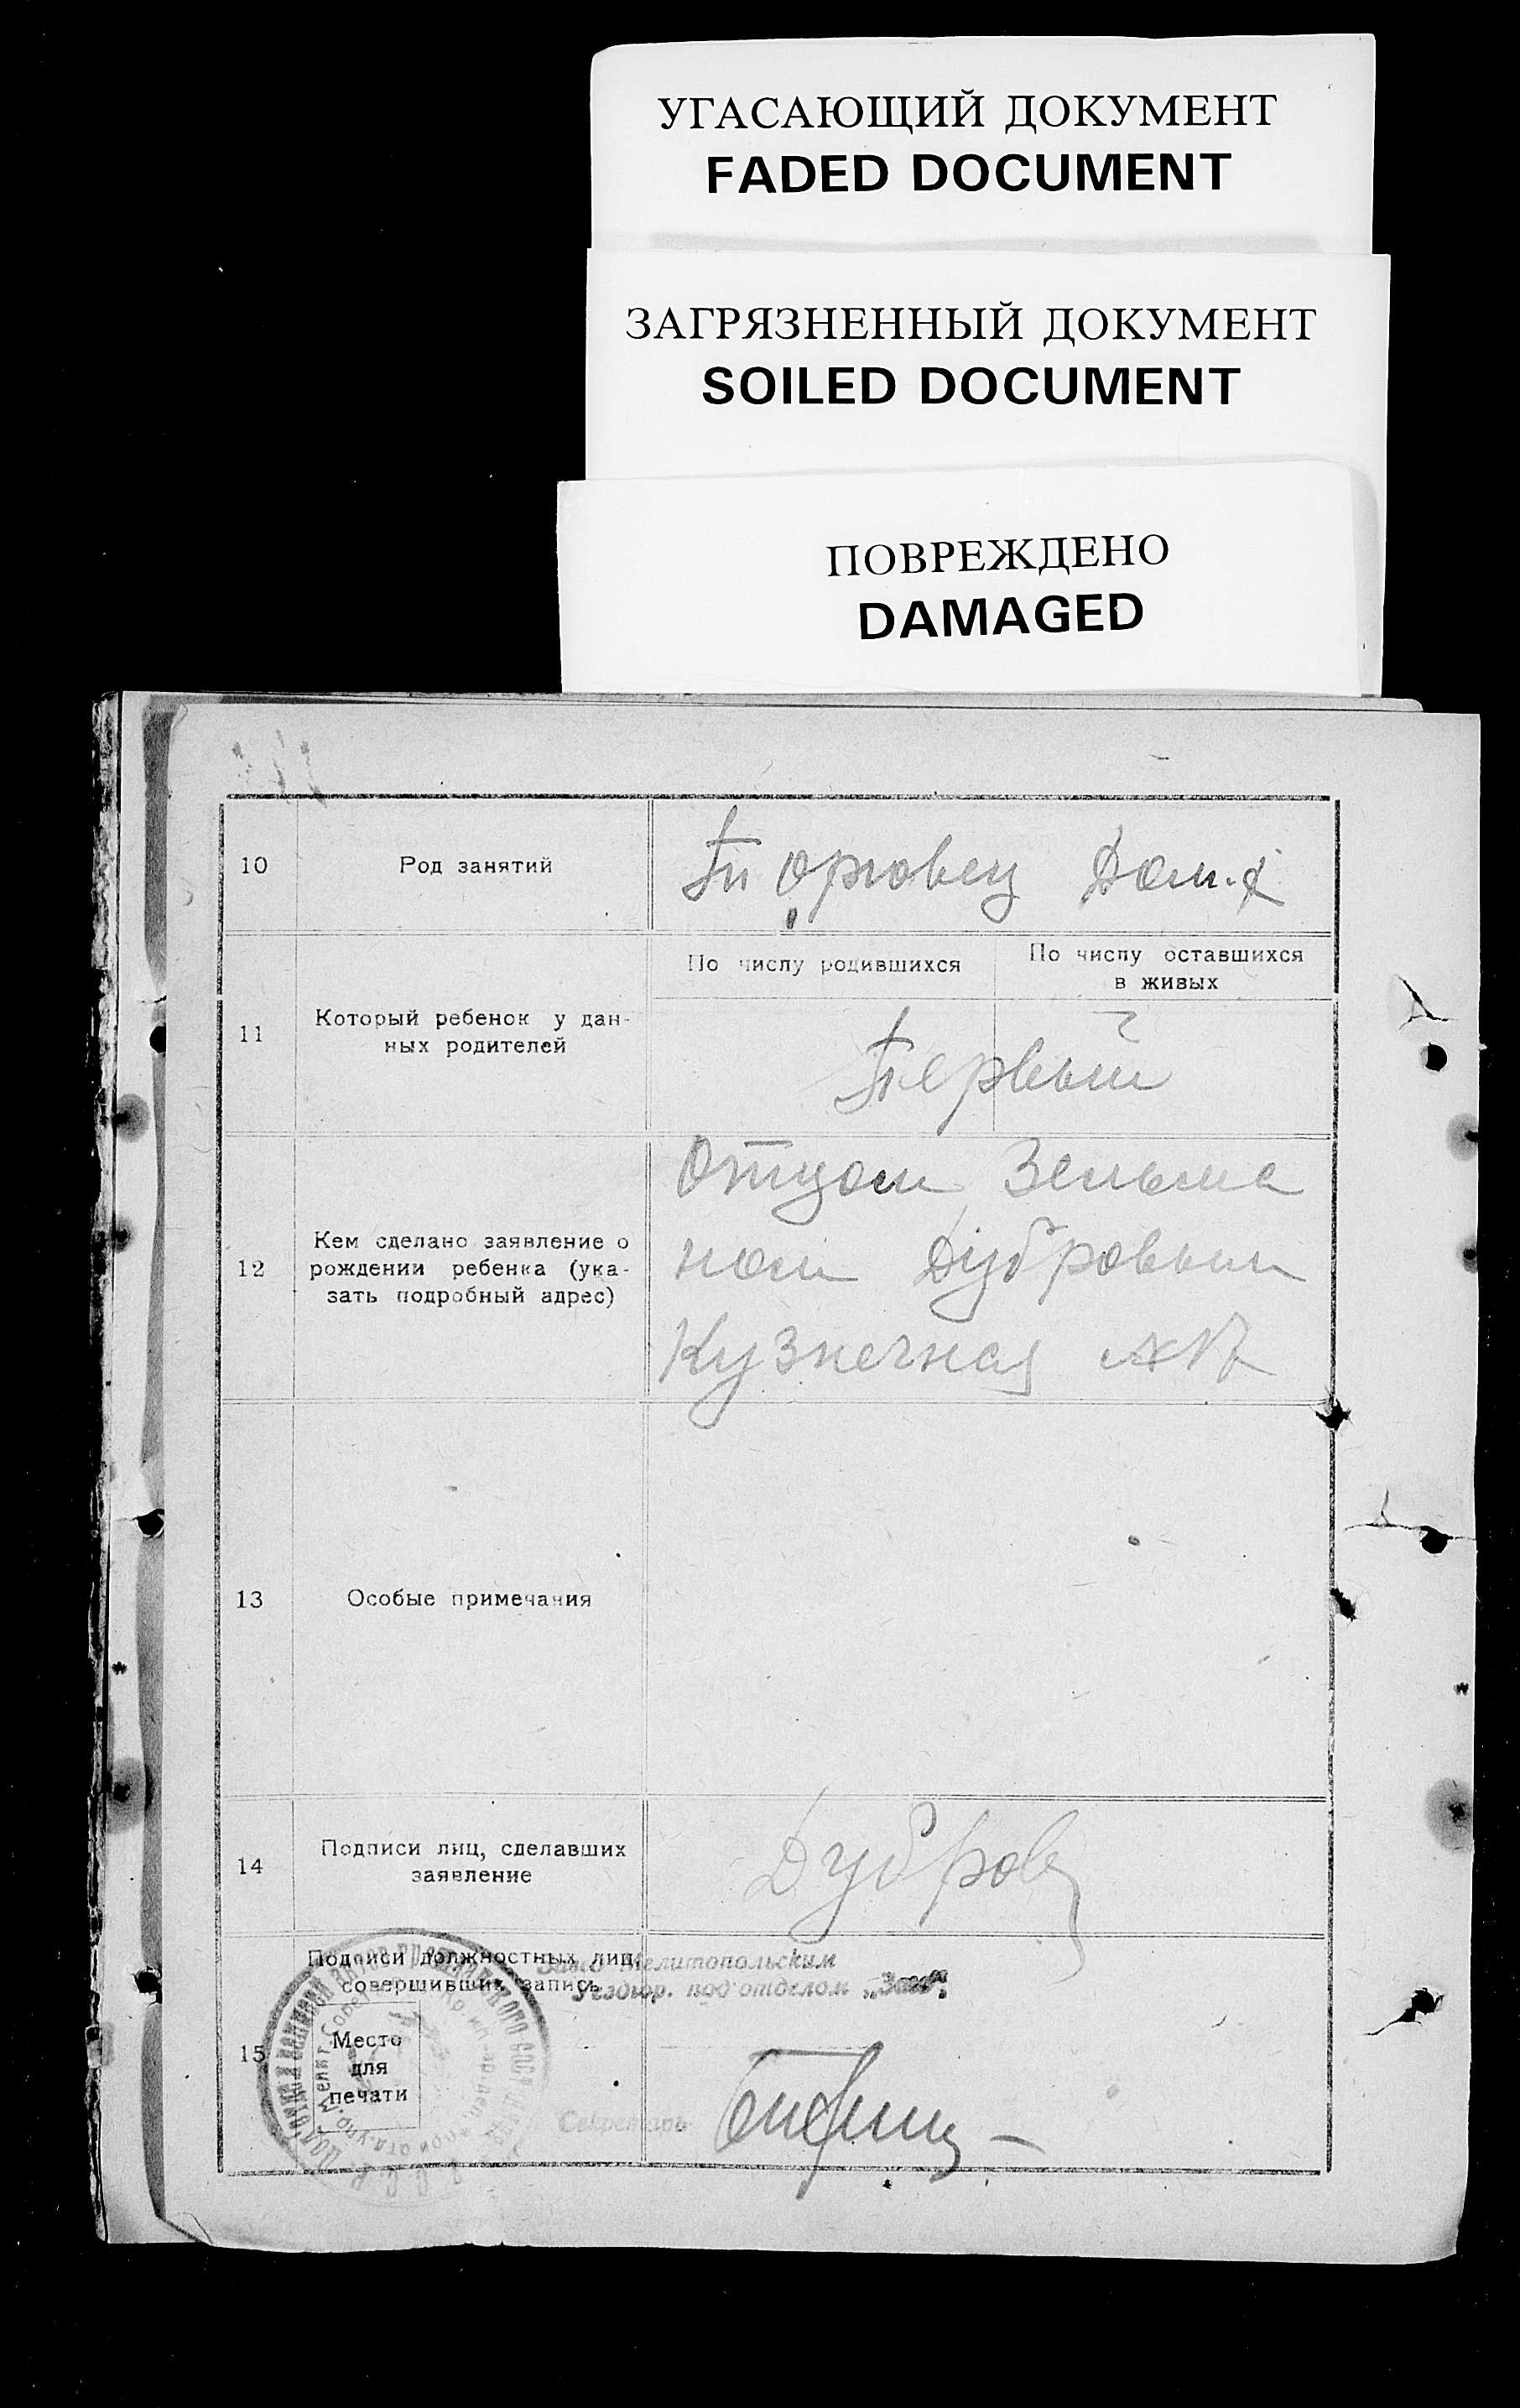 УГАСАЮЩИЙ ДОКУМЕНТ
FADED DOCUMENT
ЗАГРЯЗНЕННЫЙ ДОКУМЕНТ
SOILED DOCUMENT
ПОВРЕЖДЕНО
DAMAGED
10 Род занятий
Торговец Дом.х
11 Который ребенок у дан-
ных родителей
По числу родившихся
По числу оставшихся
в живых
Первый
12 Кем сделано заявление о
рождении ребенка (ука-
зать подробный адрес)
Отцом Зельма
ном Дубровым
Кузнечная
13 Особые примечания
14 Подписи лиц, сделавших
заявление
Дубров
15 Подписи должностных лиц,
совершивших запись
Место
для
печати
Мелитопольским
под'отделом „Загс“.
Секретарь